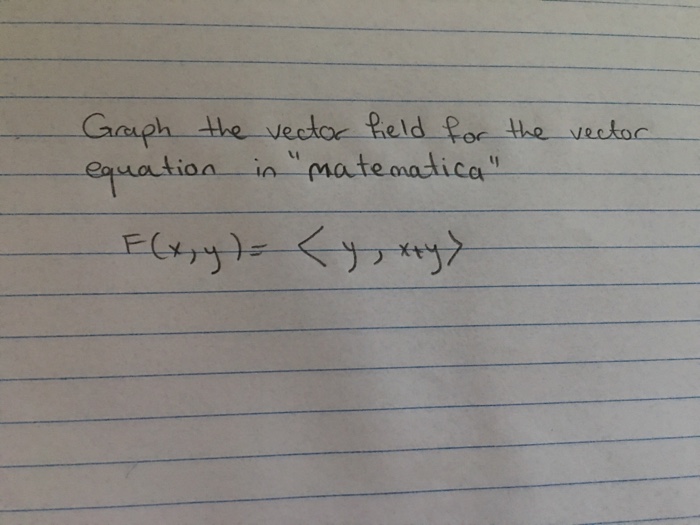 Graph the vector field for the vector
equation in "matematica"
F(x,y)= <y, x+y>